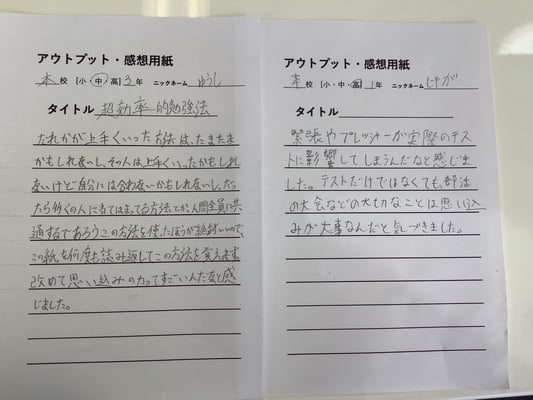 アウトプット・感想用紙
本 校 [小・中・高] 3 年 ニックネーム ゆうし
タイトル 超効率的勉強法
だれかが上手くいった方法は、たまたま
かもしれないし、その人は上手くいったかもしれ
ないけど自分には合わないかもしれないし、だっ
たら多くの人に当てはまってる方法とか、人間全員に共
通するであろうこの方法を使ったほうが絶対いいので、
この紙を何度も読み返してこの方法を覚えます。
改めて思い込みの力ってすごいんだなと感
じました。
アウトプット・感想用紙
本 校 [小・中・高] 1 年 ニックネーム じゃが
タイトル
緊張やプレッシャーが実際のテス
トに影響してしまうんだなと感じま
した。テストだけではなくても、部活
の大会などの大切なことは思い込
みが大事なんだと気づきました。